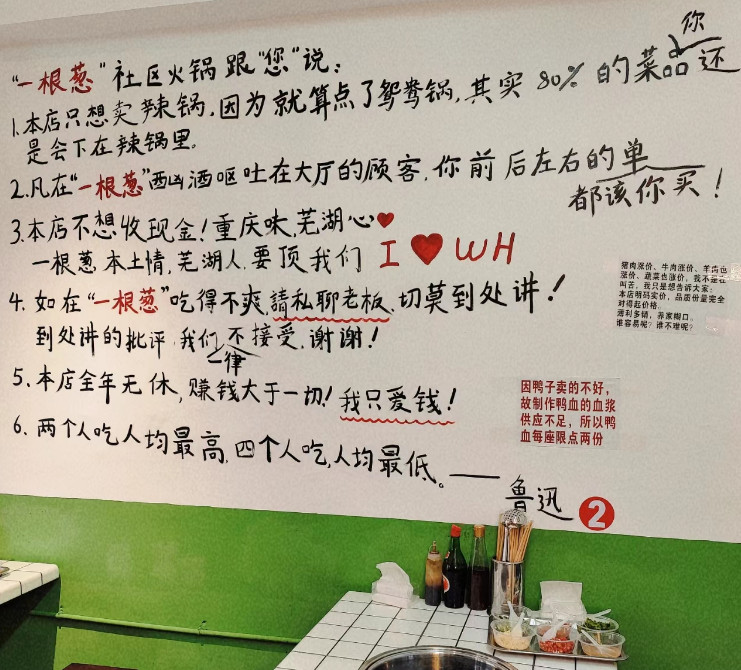 "一根葱"社区火锅跟"您"说：
1.本店只想卖辣锅，因为就算点了鸳鸯锅，其实80%的菜品你还
是会下在辣锅里。
2.凡在"一根葱"酗酒呕吐在大厅的顾客，你前后左右的单
都该你买！
3.本店不想收现金！重庆味，芜湖心❤
一根葱，本土情，芜湖人，要顶我们 I❤WH
4.如在"一根葱"吃得不爽，請私聊老板，切莫到处讲！
到处讲的批评，我们一律不接受，谢谢！
5.本店全年无休，赚钱大于一切！我只爱钱！
6、两个人吃人均最高，四个人吃，人均最低。——
鲁迅
2
猪肉涨价、牛肉涨价、羊肉也
涨价、蔬菜也涨价，我不是在
叫苦，我只是想告诉大家：
本店明码实价，品质份量完全
对得起价格。
薄利多销，养家糊口。
谁容易呢？谁不难呢？
因鸭子卖的不好，
故制作鸭血的血浆
供应不足，所以鸭
血每座限点两份